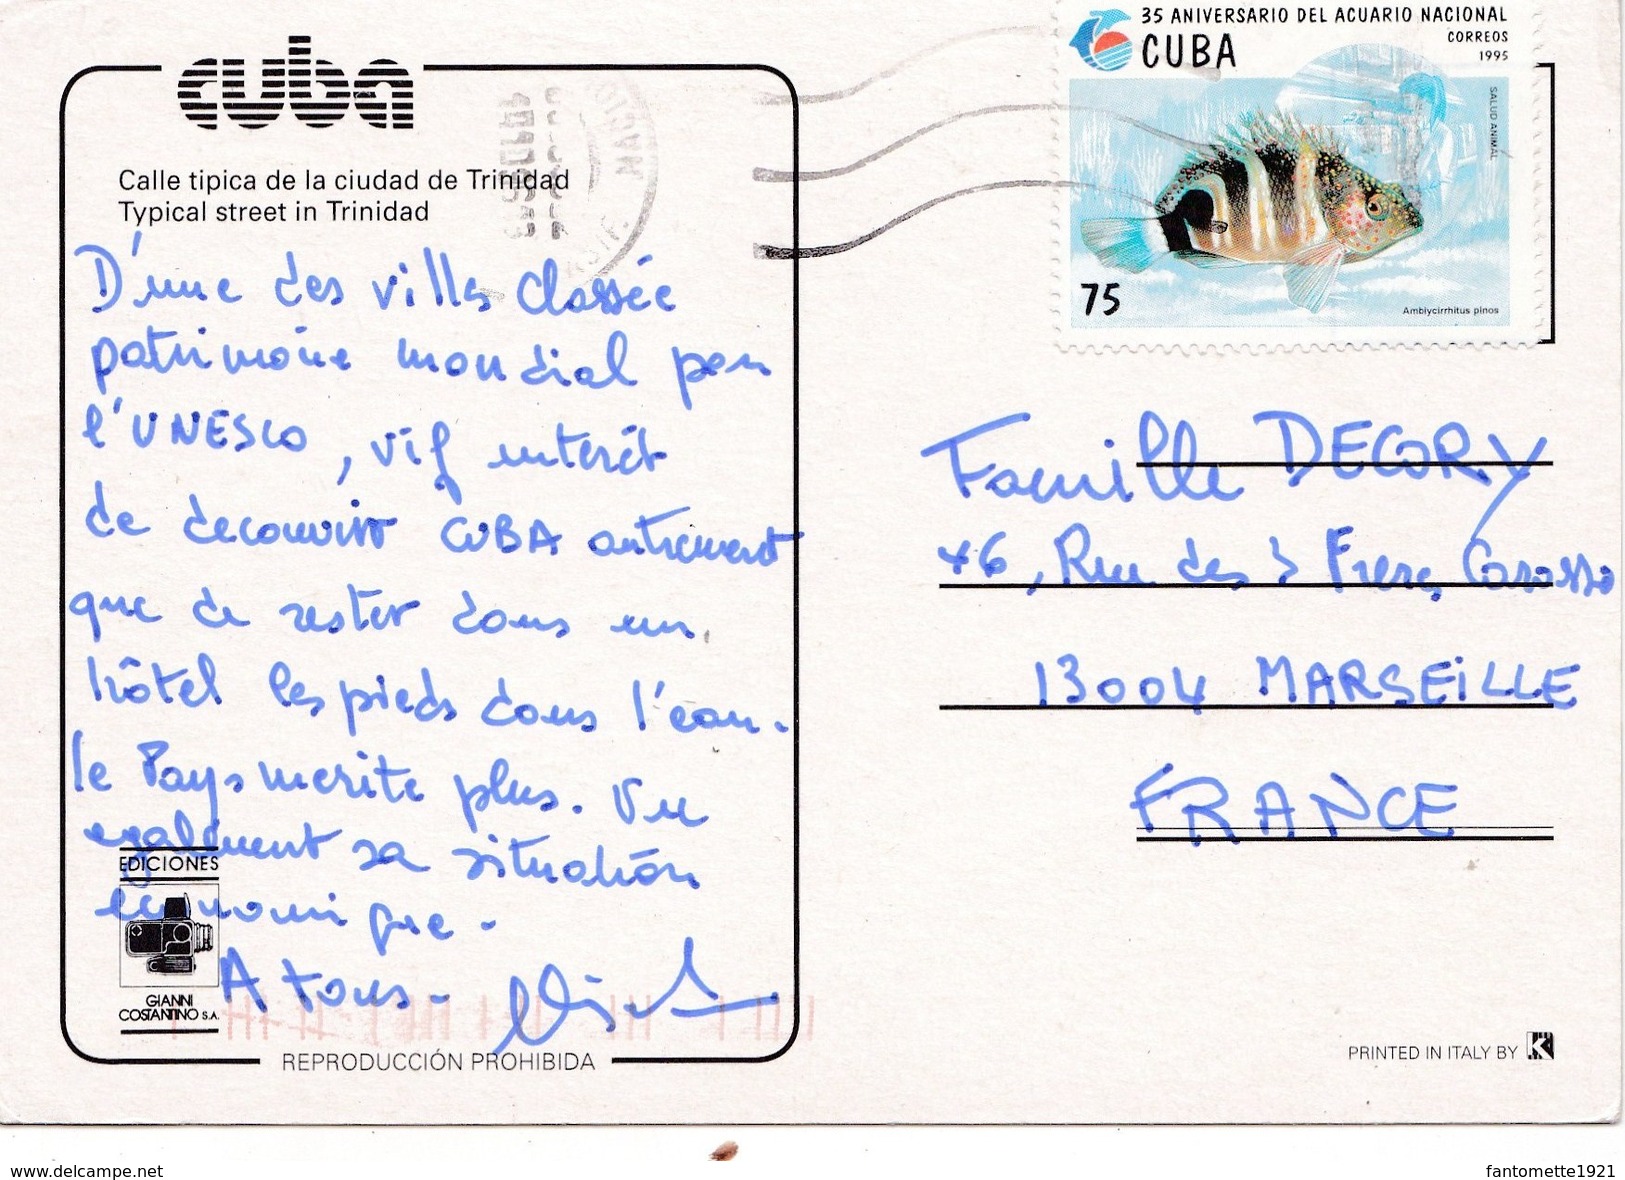 35 ANIVERSARIO DEL ACUARIO NACIONAL
CORREOS
CUBA
1995
SALUD ANIMAL
75
Amblycirrhitus pinos
cuba
Calle tipica de la ciudad de Trinidad
Typical street in Trinidad
D'une des villes classée
patrimoine mondial par
l'UNESCO, vif intérêt
de decouvrir CUBA autrement
que de rester dans un
hôtel les pieds dans l'eau.
le Pays merite plus. Vu
egalement sa situation
economique.
A tous.
Famille DECORY
46, Rue des 3 Freres Carasso
13004 MARSEILLE
FRANCE
EDICIONES
GIANNI
COSTANTINO S.A.
REPRODUCCIÓN PROHIBIDA
PRINTED IN ITALY BY K
www.delcampe.net
fantomette1921